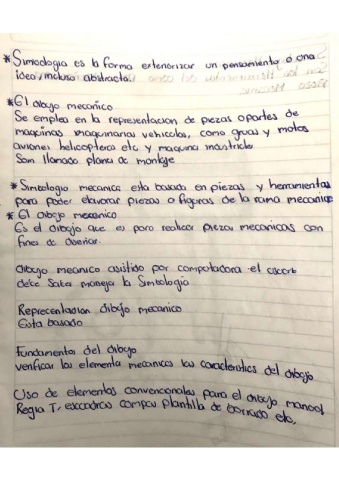 * Simodogia es la forma exteriorizar un pensamiento o una
idea, incluso abstracta
* El dibujo mecanico
Se emplea en la representacion de piezas o partes de
maquinas maquinarias vehiculos, como gruas y motos
aviones helicopteros etc y maquina industriales
Som llamado planos de montaje
* Simbologia mecanica esta basada en piezas y herramientas
para poder elavorar piezas o figuras de la rama mecanica
* El dibujo mecanico
Es el dibojo que es para realicar piezas mecanicas con
fines de diseñar.
dibujo mecanico asistido por computadora el
debe saber maneja la Simbologia
Reprecentacion dibujo mecanico
Esta basado
Fundamentos del dibujo
verificar los elementa mecanicos las caracteristics del dibojo
Uso de elementos convencionales para el dibujo manual
Regla T, escuadras compas plantilla de borrado etc,